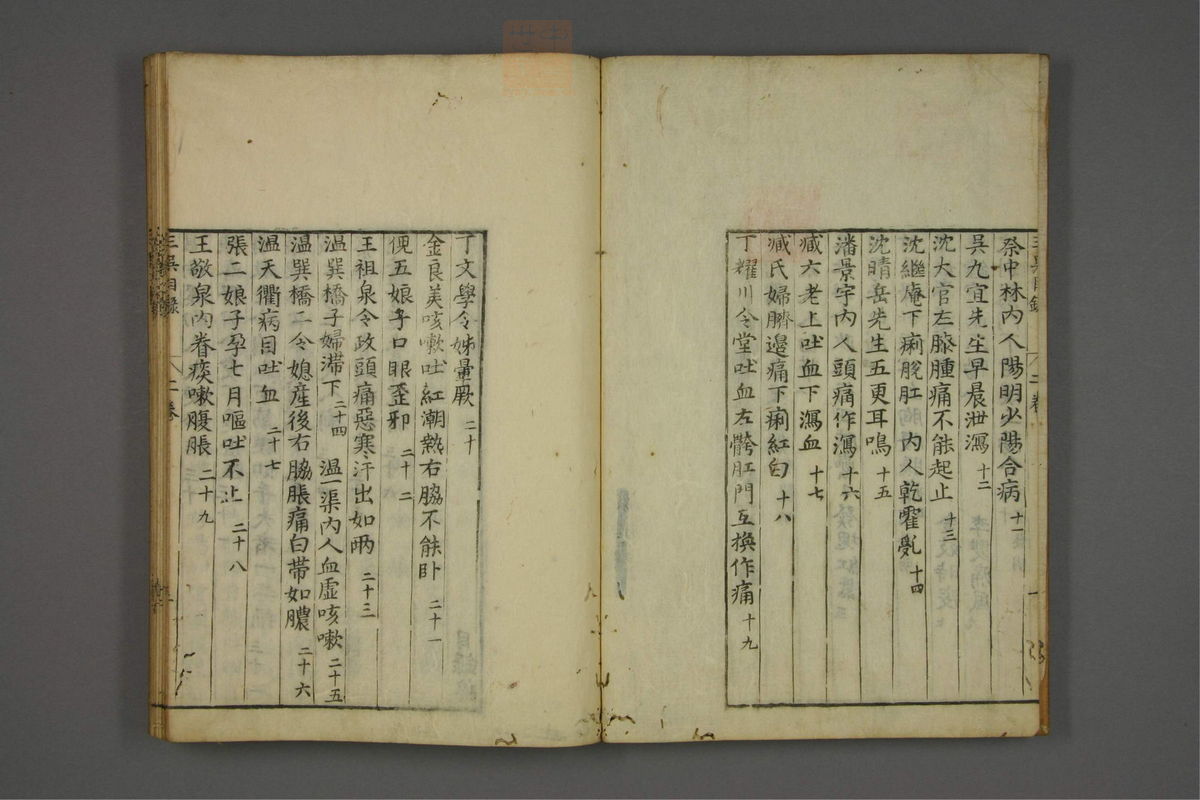 三吳目錄 二卷
祭中林內人陽明少陽合病 十一
吳九宜先生早晨泄瀉 十二
沈大官左膝腫痛不能起止 十三
沈繼庵下痢脫肛 內人乾霍亂 十四
沈晴岳先生五更耳鳴 十五
潘景宇內人頭痛作瀉 十六
臧六老上吐血下瀉血 十七
臧氏婦臍邊痛下痢紅白 十八
丁耀川令堂吐血左胯肛門互換作痛 十九
丁文學令姊暈厥 二十
金良美咳嗽吐紅潮熱右脇不能卧 二十一
倪五娘子口眼歪邪 二十二
王祖泉令政頭痛惡寒汗出如雨 二十三
溫巽橋子婦滯下 二十四 溫一渠內人血虛咳嗽 二十五
溫巽橋二令媳産後右脇脹痛白帶如膿 二十六
溫天衢病目吐血 二十七
張二娘子孕七月嘔吐不止 二十八
王敬泉內眷痰嗽腹脹 二十九
三吳目錄 二卷